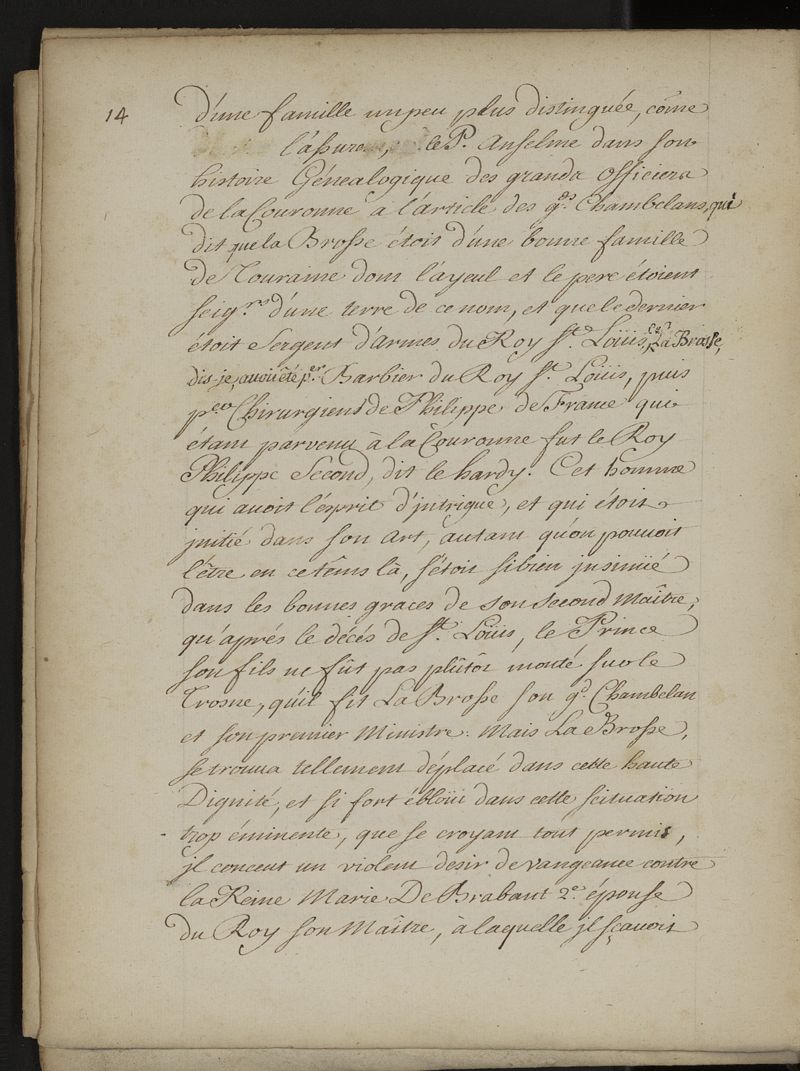 14
d'une famille un peu plus distinguée, come
l'assure, le P. Anselme dans son
histoire Génealogique des grands Officiers
de la Couronne à l'article des gds. Chambelans, qui
dit que la Brosse étoit d'une bonne famille
de Touraine dont l'ayeul et le pere étoient
seigrs. d'une terre de ce nom, et que le dernier
étoit Sergent d'armes du Roy St. Loüis, La Brosse,
dis-je, avoit été per. Barbier du Roy St. Loüis, puis
per Chirurgien de Philippe de France qui
étant parvenu à la Couronne fut le Roy
Philippe Second, dit le hardy. Cet homme
qui avoit l'esprit d'jntrigue, et qui étoit
jnitié dans son art, autant qu'on pouvoit
l'être en ce têms là, s'étoit si bien jnsinüé
dans les bonnes graces de son second Maître,
qu'aprés le décés de St. Loüis, le Prince
son fils ne fût pas plûtôt monté sur le
Trosne, qu'il fit La Brosse son gd. Chambelan
et son premier Ministre. Mais La Brosse,
se trouva tellement déplacé dans cette haute
Dignité, et si fort ébloüi dans cette scituation
trop éminente, que se croyant tout permis,
jl conceut un violent desir de vangeance contre
la Reine Marie De Brabant 2e. épouse
du Roy son Maître, à laquelle jl sçavoit